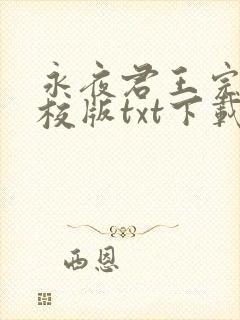 永夜君王完
校版txt下载
西恩